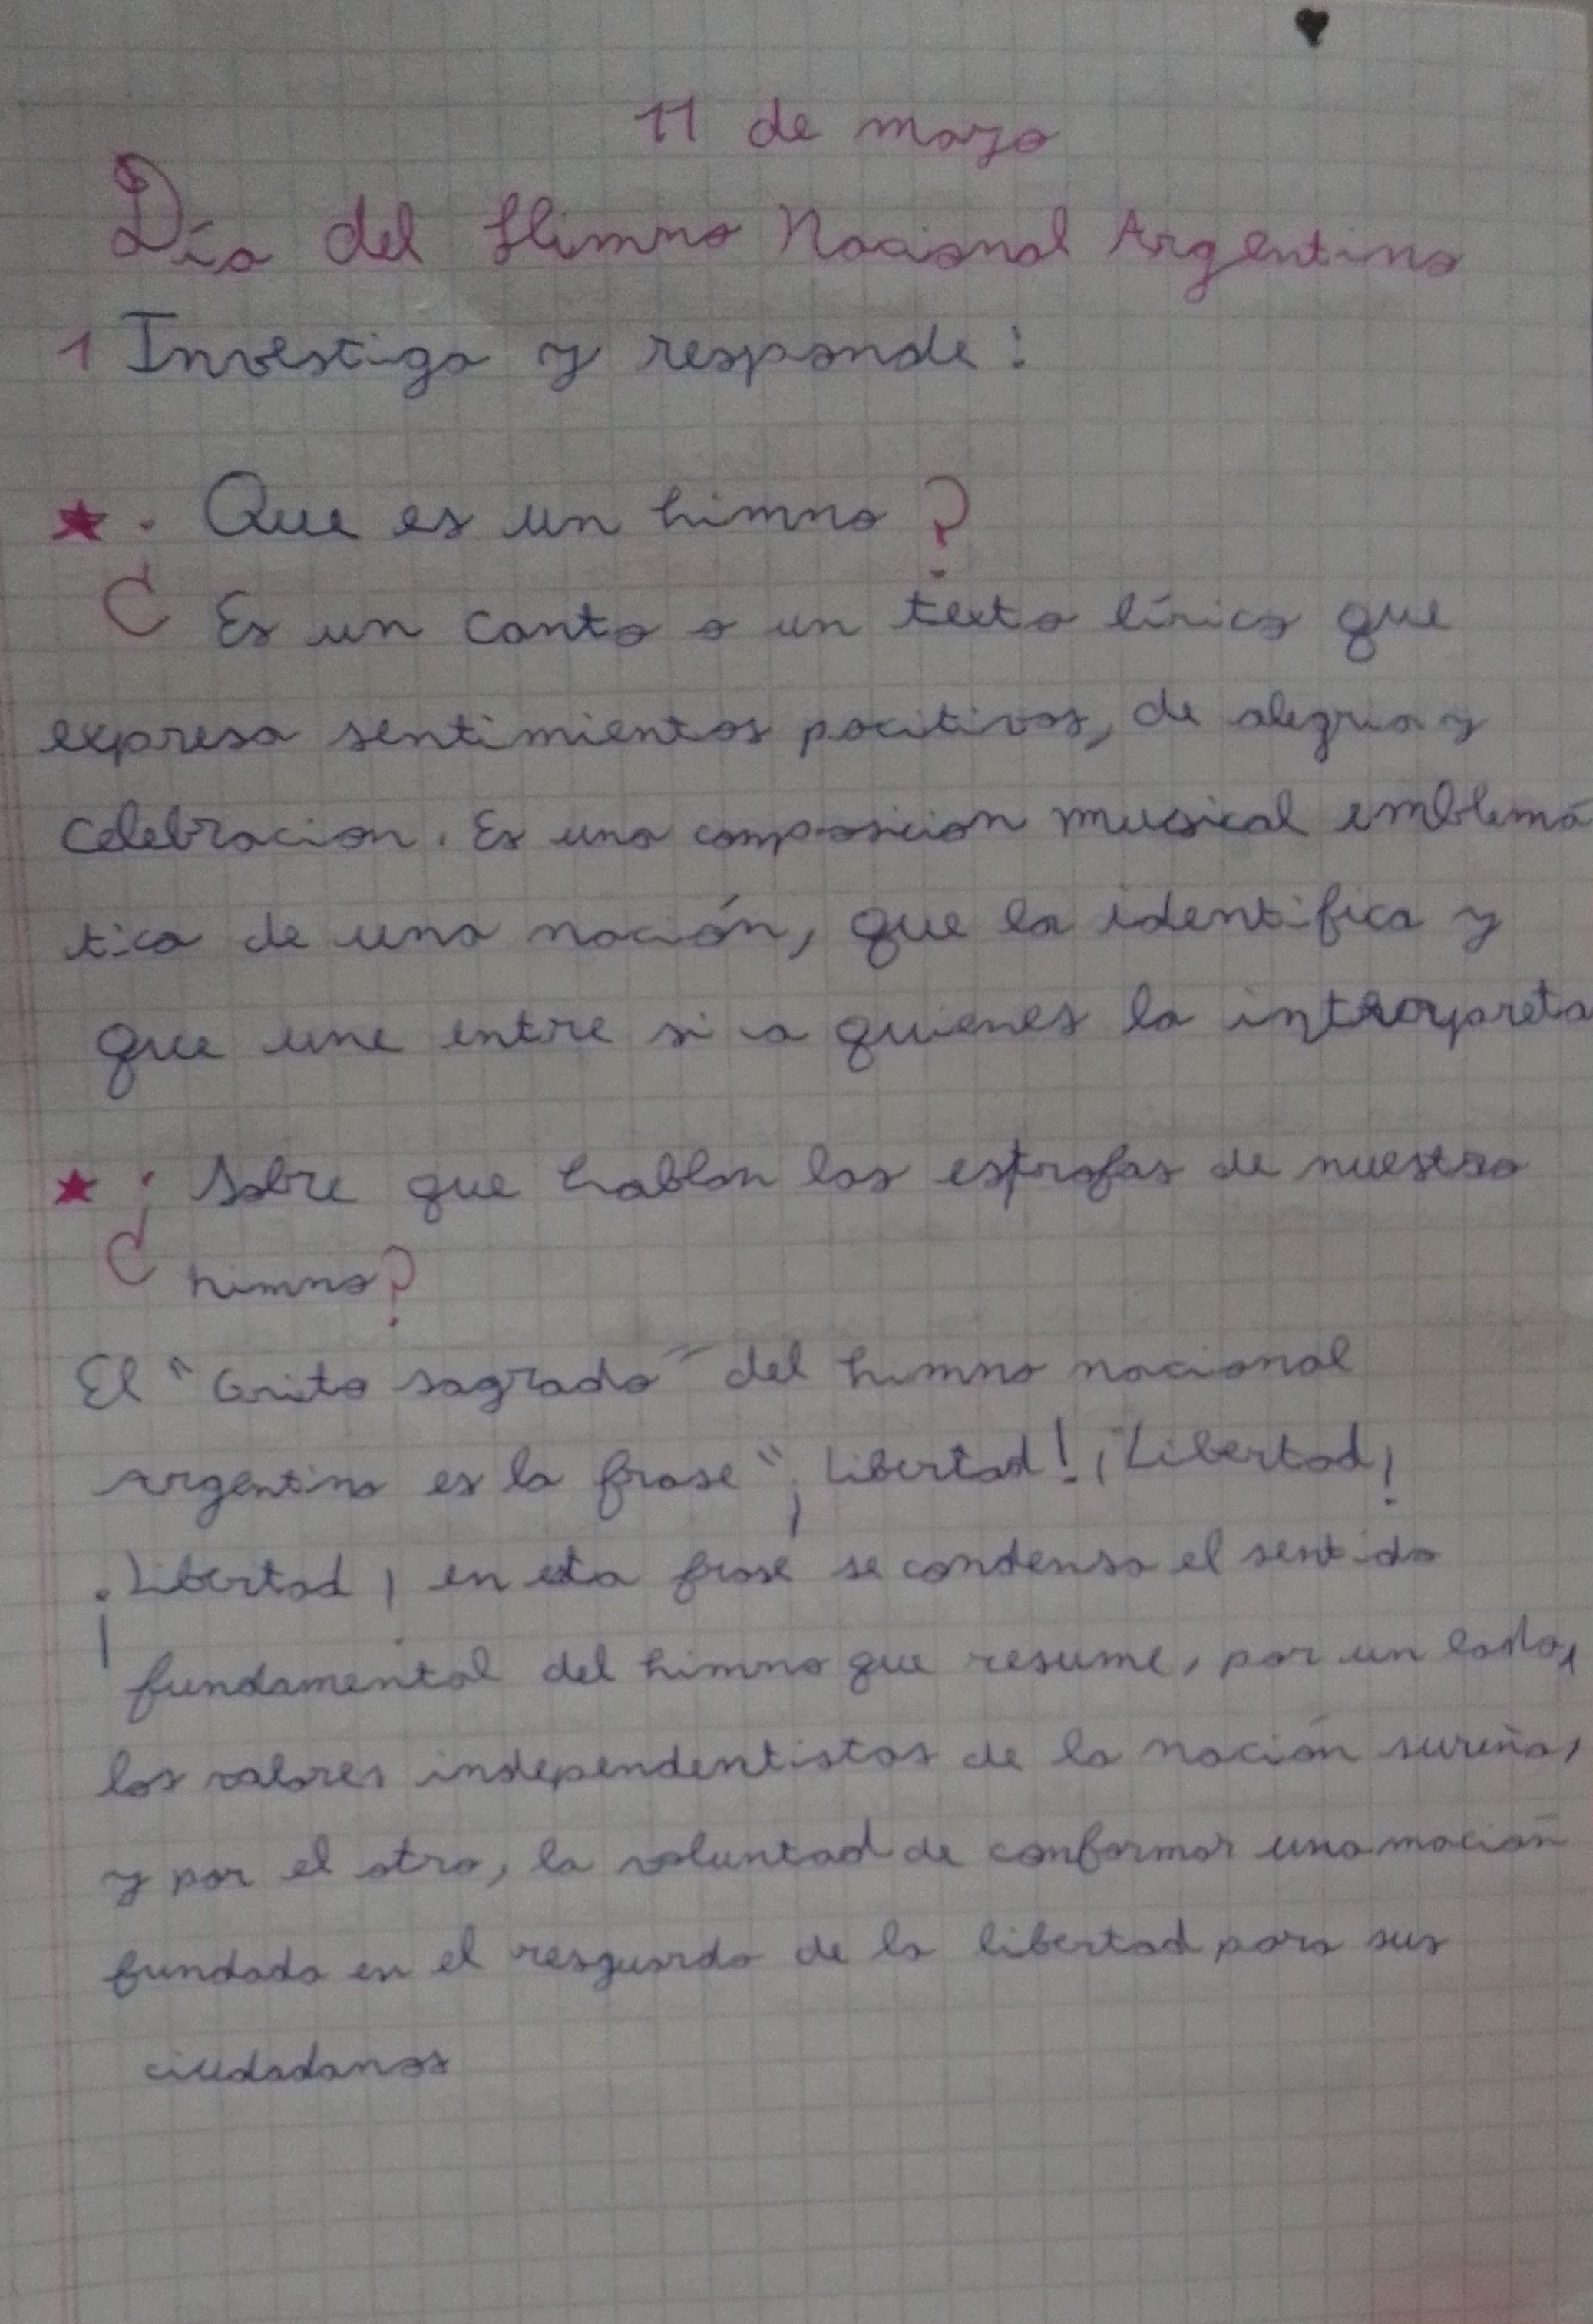 11 de mayo
Día del Himno Nacional Argentino
1 Investiga y responde:
¿Que es un himno?
Es un canto o un texto lírico que
expresa sentimientos pocitivos, de alegria y
celebracion. Es una composicion musical emblemá
tica de una nación, que la identifica y
que une entre si a quienes la interpreta
¿Sobre que hablan las estrofas de nuestro
himno?
El "Grito sagrado" del himno nacional
argentino es la frase "¡Libertad! ¡Libertad!
¡Libertad, en esta frase se condensa el sentido
fundamental del himno que resume, por un lado,
los valores independentistas de la nación sureña,
y por el otro, la voluntad de conformar una nación
fundada en el resguardo de la libertad para sus
ciudadanos